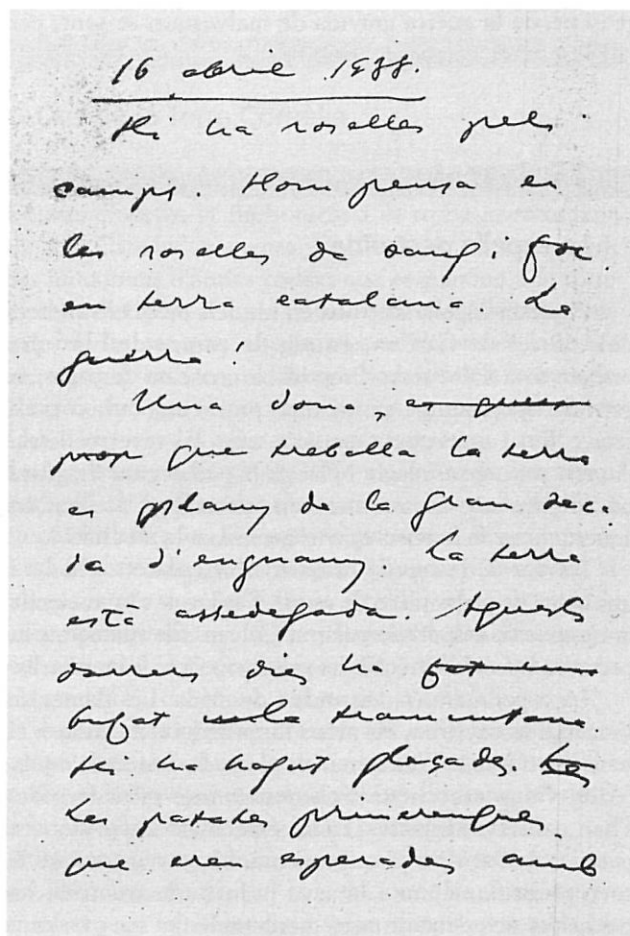 16 abril 1938.
Hi ha roselles pels
camps. Hom pensa en
les roselles de sang i foc
en terra catalana. La
guerra!
Una dona,
que treballa la terra
es plany de la gran seca-
da d'enguany. La terra
està assedegada. Aquests
darrers dies ha
bufat la tramuntana
hi ha hagut glaçades.
Les patates primerenques
que eren esperades amb